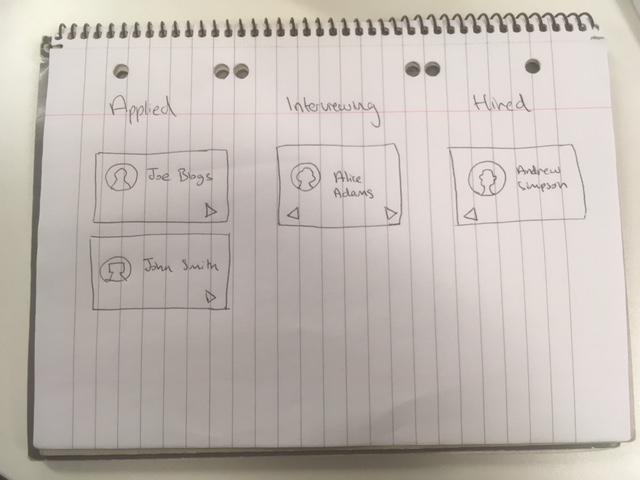 Applied
Joe Blogs
John Smith
Interviewing
Alice
Adams
Hired
Andrew
Simpson